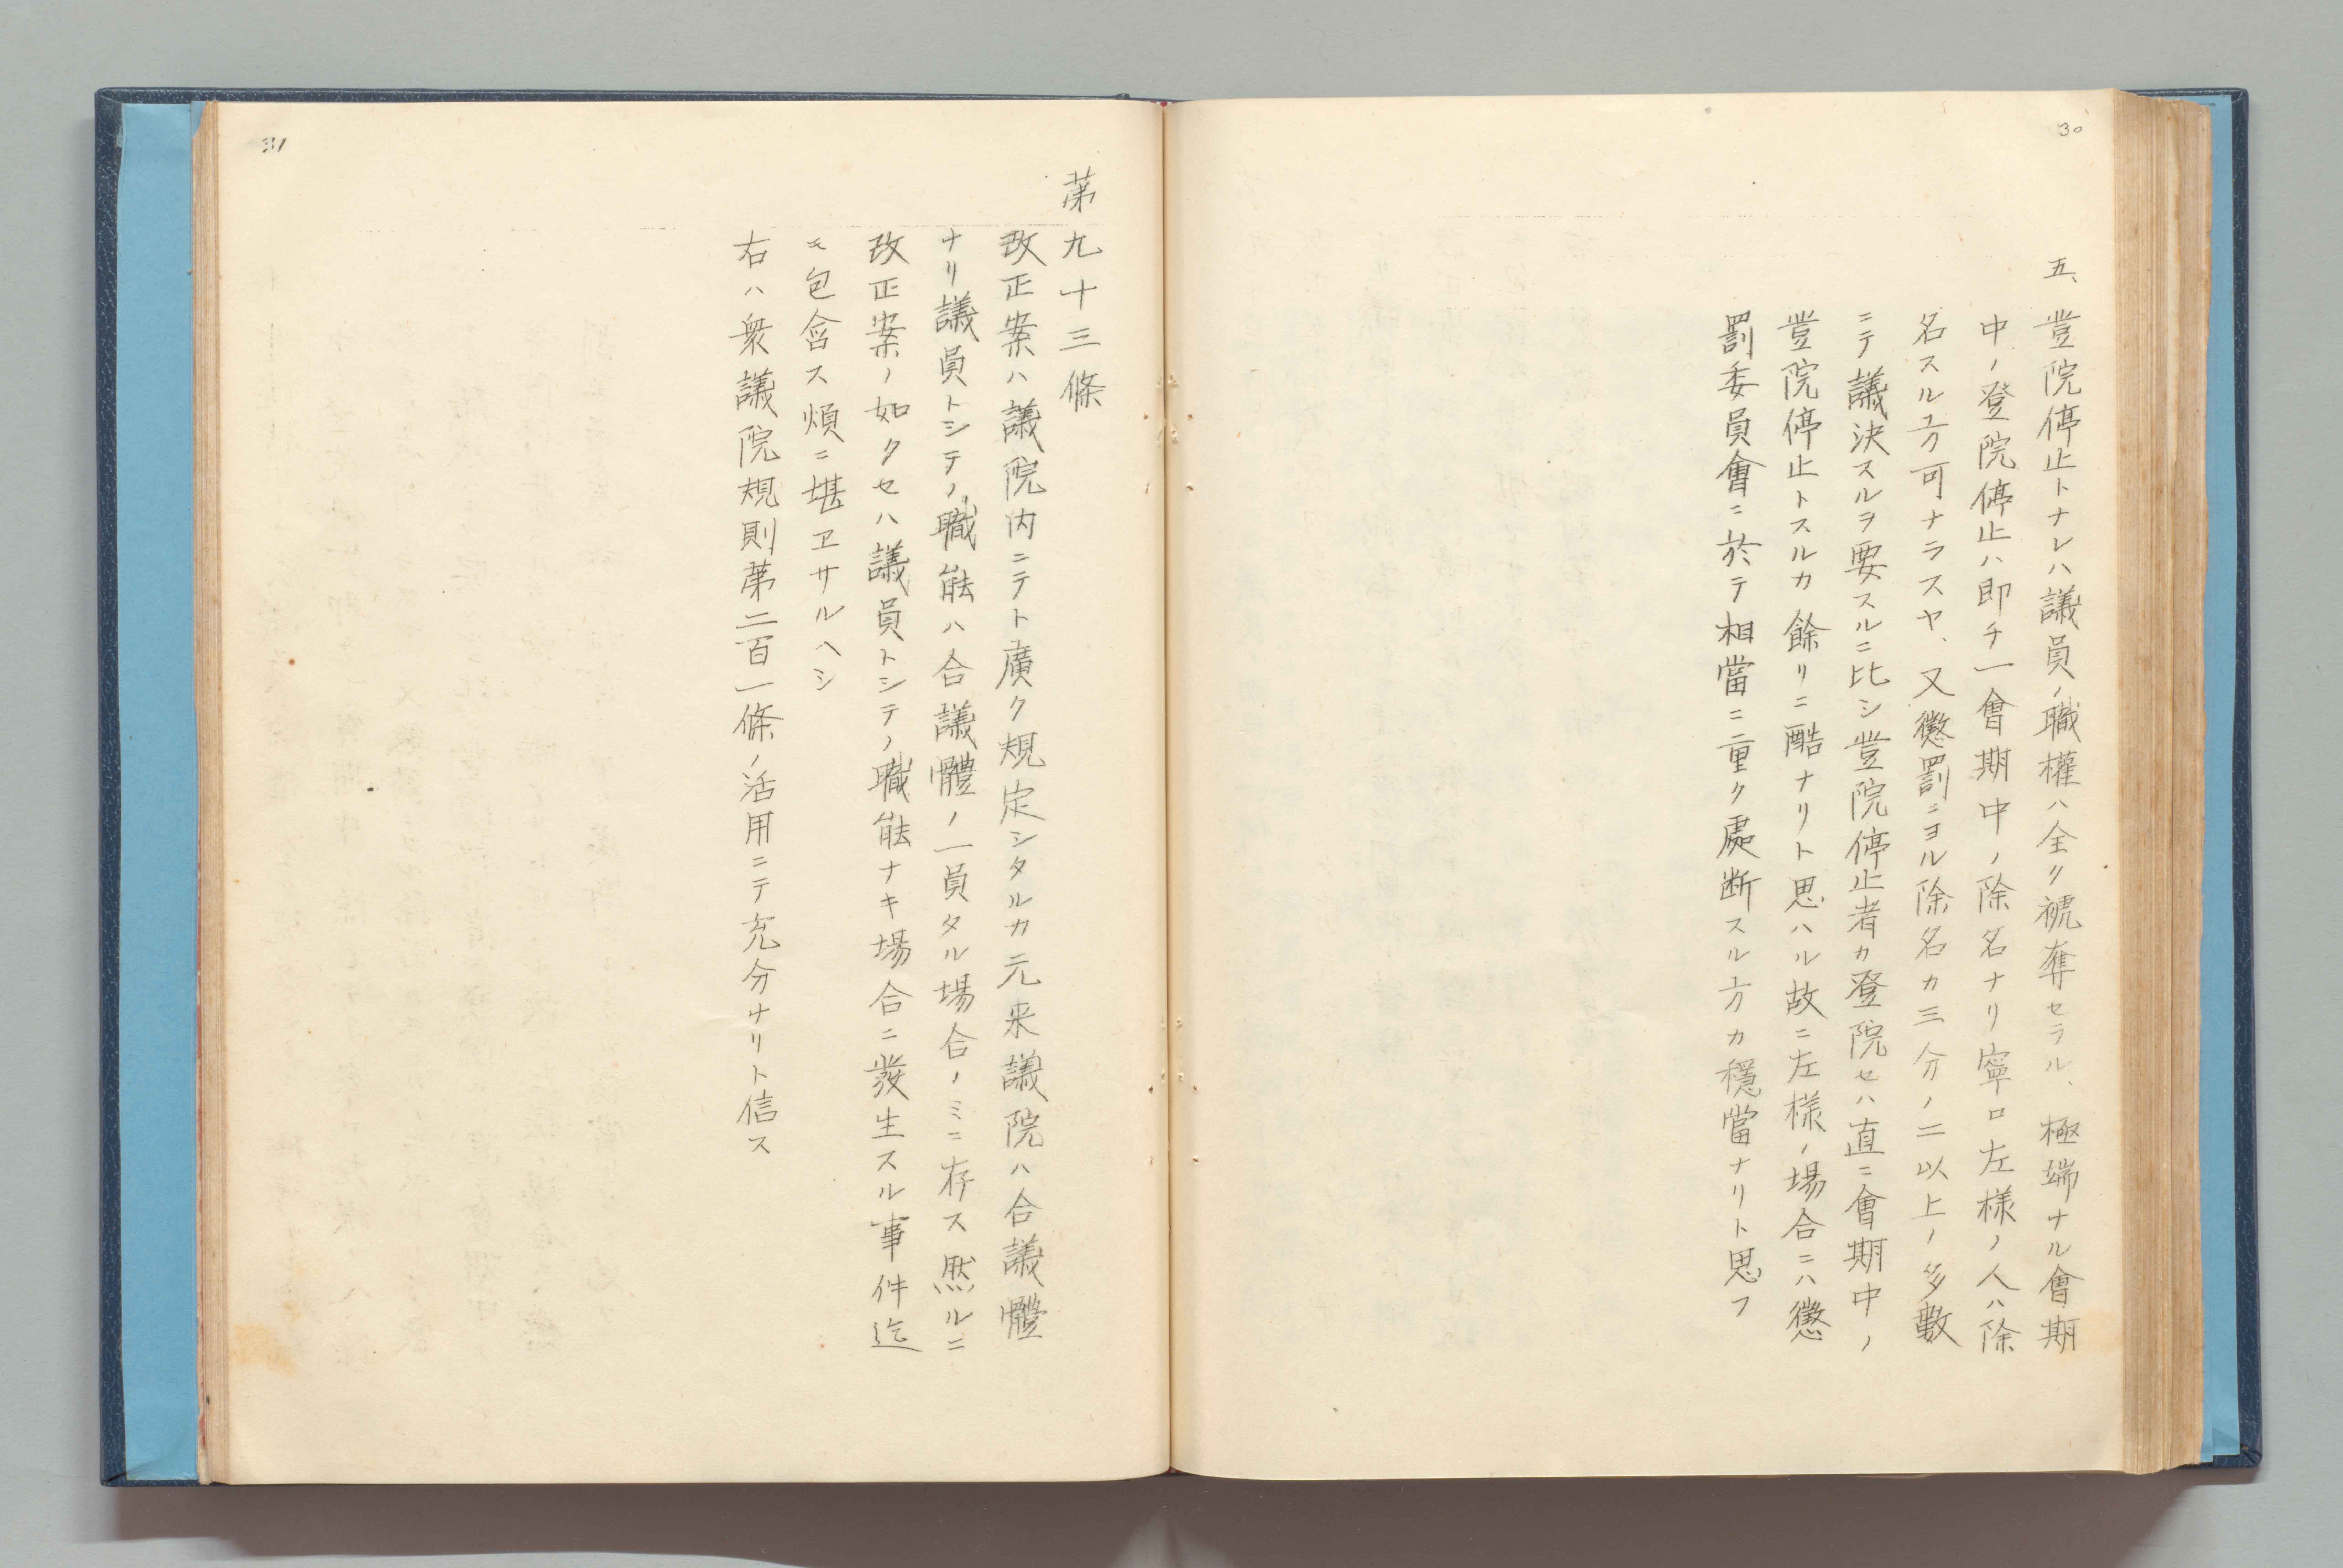 30
五、登院停止トナレハ議員ノ職權ハ全ク褫奪セラル、極端ナル會期
中ノ登院停止ハ即チ一會期中ノ除名ナリ寧ロ左樣ノ人ハ除
名スル方可ナラスヤ、又懲罰ニヨル除名カ三分ノ二以上ノ多數
ニテ議決スルヲ要スルニ比シ登院停止者カ登院セハ直ニ會期中ノ
登院停止トスルカ餘リニ酷ナリト思ハル故ニ左樣ノ場合ニハ懲
罰委員會ニ於テ相當ニ重ク處断スル方カ穩當ナリト思フ
31
第九十三條
改正案ハ議院内ニテト廣ク規定シタルカ元来議院ハ合議體
ナリ議員トシテノ職能ハ合議體ノ一員タル場合ノミニ存ス然ルニ
改正案ノ如クセハ議員トシテノ職能ナキ場合ニ發生スル事件迄
モ包含ス煩ニ堪ヱサルヘシ
右ハ衆議院規則第二百一條ノ活用ニテ充分ナリト信ス